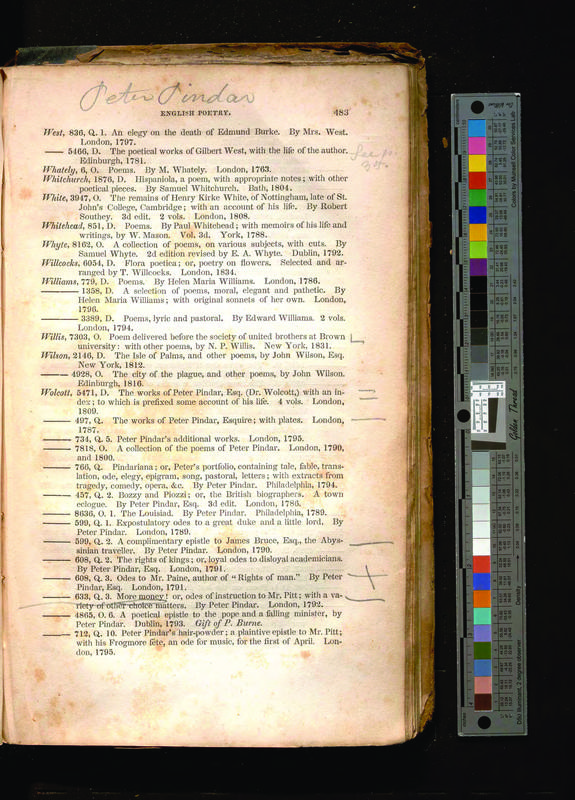 Peter Pindar
ENGLISH POETRY. 483
West, 836, Q. 1. An elegy on the death of Edmund Burke. By Mrs. West.
London, 1797.
—— 5466, D. The poetical works of Gilbert West, with the life of the author.
Edinburgh, 1781.
Whately, 6, O. Poems. By M. Whately. London, 1763.
Whitchurch, 1876, D. Hispaniola, a poem, with appropriate notes; with other
poetical pieces. By Samuel Whitchurch. Bath, 1804.
White, 3947, O. The remains of Henry Kirke White, of Nottingham, late of St.
John's College, Cambridge; with an account of his life. By Robert
Southey. 3d edit. 2 vols. London, 1808.
Whitehead, 851, D. Poems. By Paul Whitehead; with memoirs of his life and
writings, by W. Mason. Vol. 3d. York, 1788.
Whyte, 8162, O. A collection of poems, on various subjects, with cuts. By
Samuel Whyte. 2d edition revised by E. A. Whyte. Dublin, 1792.
Willcocks, 6054, D. Flora poetica; or, poetry on flowers. Selected and ar-
ranged by T. Willcocks. London, 1834.
Williams, 779, D. Poems. By Helen Maria Williams. London, 1786.
——— 1358, D. A selection of poems, moral, elegant and pathetic. By
Helen Maria Williams; with original sonnets of her own. London,
1796.
——— 3389, D. Poems, lyric and pastoral. By Edward Williams. 2 vols.
London, 1794.
Willis, 7303, O. Poem delivered before the society of united brothers at Brown
university: with other poems, by N. P. Willis. New York, 1831.
Wilson, 2146, D. The Isle of Palms, and other poems, by John Wilson, Esq.
New York, 1812.
—— 4928, O. The city of the plague, and other poems, by John Wilson.
Edinburgh, 1816.
Wolcott, 5471, D. The works of Peter Pindar, Esq. (Dr. Wolcott,) with an in-
dex; to which is prefixed some account of his life. 4 vols. London,
1809.
—— 497, Q. The works of Peter Pindar, Esquire; with plates. London,
1787.
—— 734, Q. 5. Peter Pindar's additional works. London, 1795.
—— 7818, O. A collection of the poems of Peter Pindar. London, 1790,
and 1800.
—— 766, Q. Pindariana; or, Peter's portfolio, containing tale, fable, trans-
lation, ode, elegy, epigram, song, pastoral, letters; with extracts from
tragedy, comedy, opera, &c. By Peter Pindar. Philadelphia, 1794.
—— 457, Q. 2. Bozzy and Piozzi; or, the British biographers. A town
eclogue. By Peter Pindar, Esq. 3d edit. London, 1786.
—— 8636, O. 1. The Lousiad. By Peter Pindar. Philadelphia, 1789.
—— 599, Q. 1. Expostulatory odes to a great duke and a little lord. By
Peter Pindar. London, 1789.
—— 599, Q. 2. A complimentary epistle to James Bruce, Esq., the Abys-
sinian traveller. By Peter Pindar. London, 1790.
—— 608, Q. 2. The rights of kings; or, loyal odes to disloyal academicians.
By Peter Pindar, Esq. London, 1791.
—— 608, Q. 3. Odes to Mr. Paine, author of "Rights of man." By Peter
Pindar, Esq. London, 1791.
—— 633, Q. 3. More money! or, odes of instruction to Mr. Pitt; with a va-
riety of other choice matters. By Peter Pindar. London, 1792.
—— 4865, O. 6. A poetical epistle to the pope and a falling minister, by
Peter Pindar. Dublin, 1793. Gift of P. Burne.
—— 712, Q. 10. Peter Pindar's hair-powder; a plaintive epistle to Mr. Pitt;
with his Frogmore fête, an ode for music, for the first of April. Lon-
don, 1795.
Golden Thread